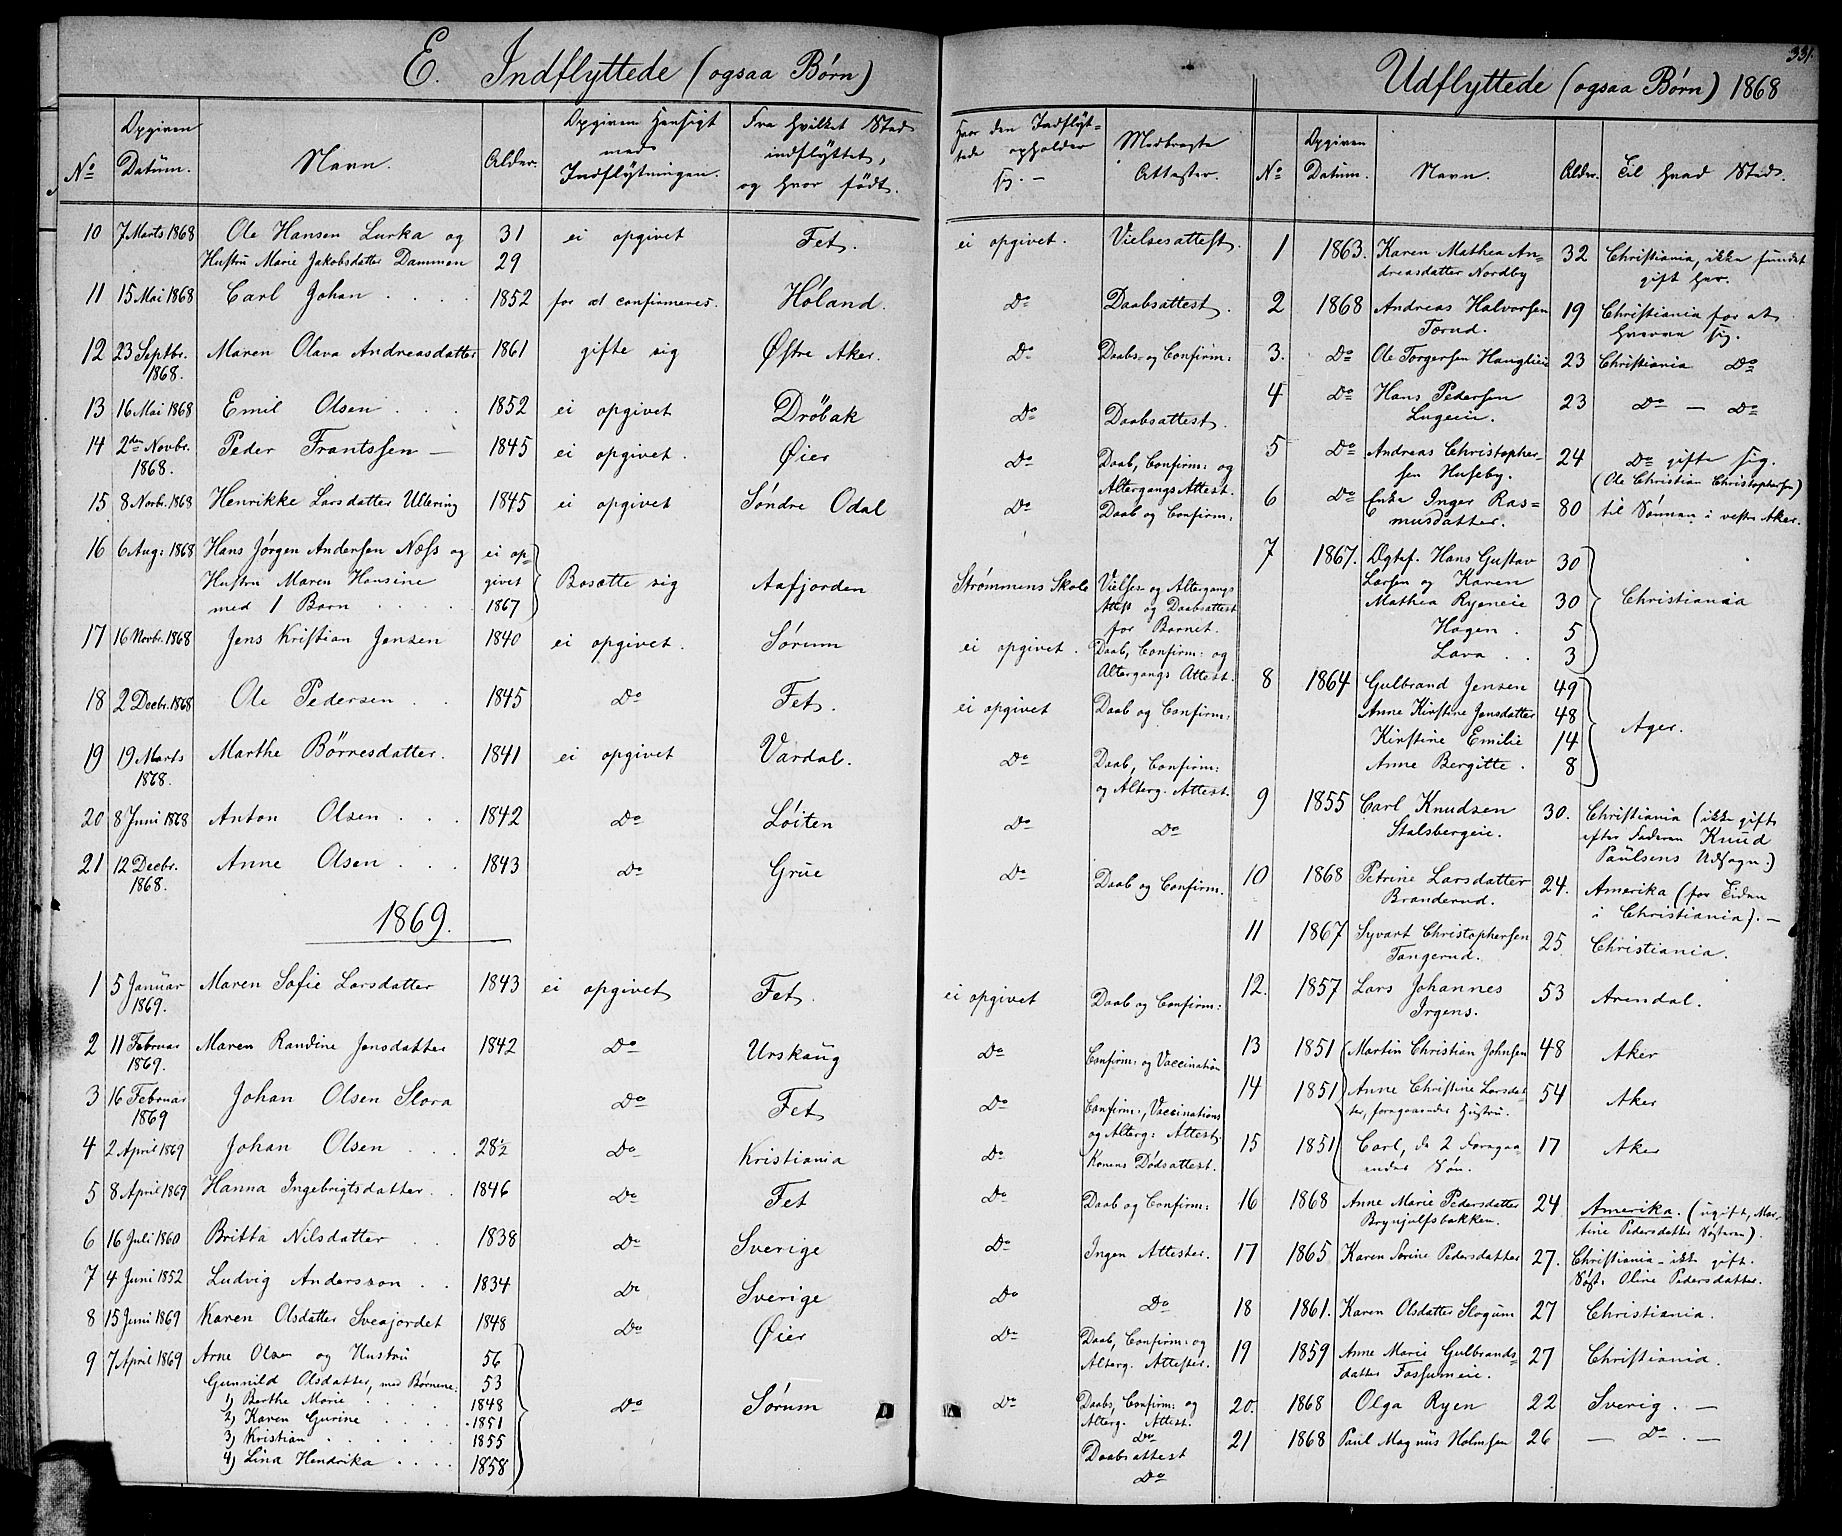 E. Indflyttede (ogsaa Børn)
No | Opgiven Datum. | Navn. | Alder. | Opgiven Hensigt med Indflytningen. | Fra hvilket Sted indflyttet, og hvor født. | Hvor den Indflyttede opholder sig. — | Medbragte Attester.
10 | 7 Marts 1868 | Ole Hansen Lurka og | 31 | ei opgivet | Fet. | ei opgivet. | Vielsesattest.
Hustru Marie Jakobsdatter Dammen | 29
11 | 15 Mai 1868 | Carl Johan . . . . | 1852 | for at confirmeres. | Høland. | Do | Daabsattest.
12 | 23 Septbr. 1868. | Maren Olava Andreasdatter | 1861 | gifte sig | Østre Aker. | Do | Daabs- og Confirm:
13 | 16 Mai 1868 | Emil Olsen . . . | 1852 | ei opgivet | Drøbak | Do | Daabsattest.
14 | 2den Novbr. 1868. | Peder Frantssen — | 1845 | ei opgivet. | Øier | Do | Daab, Confirm: og Altergangs Attest.
15 | 8 Novbr. 1868 | Henrikke Larsdatter Ullering | 1845 | ei opgivet | Søndre Odal | Do | Daab og Confirm:
16 | 6 Aug: 1868 | Hans Jørgen Andersen Næss og | ei op- | Bosætte sig | Aafjorden | Strømmens Skole | Vielses og Altergangs
Hustru Maren Hansine | givet | Attest og Daabsattest
med 1 Barn . . . . . | 1867 | for Barnet.
17 | 16 Novbr. 1868 | Jens Kristian Jensen | 1840 | ei opgivet. | Sørum | ei opgivet. | Daab, Confirm: og Altergangs Attest.
18 | 2 Decbr. 1868 | Ole Pedersen . . | 1845 | Do | Fet. | ei opgivet | Daab og Confirm:
19 | 19 Marts 1868. | Marthe Børresdatter. | 1841 | ei opgivet | Vardal. | Do | Daab, Confirm: og Alterg. Attest.
20 | 8 Juni 1868 | Anton Olsen . . . | 1842 | Do | Løiten | Do | Do
21 | 12 Decbr. 1868. | Anne Olsen . . . | 1843 | Do | Grue | Do | Daab og Confirm.
1869.
1 | 5 Januar 1869. | Maren Sofie Larsdatter | 1843 | ei opgivet | Fet. | ei opgivet | Daab og Confirm:
2 | 11 Februar 1869. | Maren Randine Jensdatter | 1842 | Do | Urskaug | Do | Confirm: og Vaccination
3 | 16 Februar 1869 | Johan Olsen Slora | Do | Fet | Do | Confirm:, Vaccinations og Alterg: Attest.
4 | 2 April 1869 | Johan Olsen . . . | 28½ | Do | Kristiania | Do | Konens Dødsattest.
5 | 8 April 1869 | Hanna Ingebrigtsdatter . . | 1846 | Do | Fet | Do | Daab og Confirm:
6 | 16 Juli 1860 | Britta Nilsdatter . . | 1838 | Do | Sverige | Do | Ingen Attester.
7 | 4 Juni 1852 | Ludvig Andersson . . | 1834 | Do | Sverige | Do | Do
8 | 15 Juni 1869 | Karen Olsdatter Sveajordet | 1848 | Do | Øier | Do | Daab, Confirm: og Alterg. Attester.
9 | 7 April 1869 | Arne Olsen og Hustru | 56 | Do | Sørum | Do | Daabs, Confirm: og Alterg. Attest.
Gunnild Olsdatter, med Børnene: | 53
1) Berthe Marie . . . . . | 1848
2) Karen Gurine . . . . | 1851 | Do
3) Kristian . . . . . . | 1855 | Daabsattest
4) Lina Hendrika . . . . | 1858 | Do
331.
Udflyttede (ogsaa Børn) 1868
No | Opgiven Datum. | Navn. | Alder. | Til hvad Sted.
1 | 1863. | Karen Mathea Andreasdatter Nordby | 32 | Christiania, ikke fundet gift her.
2 | 1868 | Andreas Halvorsen Tærud. | 19 | Christiania for at hverve sig.
3. | Do | Ole Torgersen Haugteie | 23 | Christiania Do
4 | Do | Hans Pedersen Lugeeie. | 23 | Do — Do
5 | Do | Andreas Christophersen Huseby. | 24 | Do gifte sig. (Ole Christian Christophersen)
6 | Do | Enke Inger Rasmusdatter. | 80 | til Sønnen i vestre Aker.
7 | 1867. | Ægtef. Hans Gustav | 30 | Christiania
Larsen og Karen
Mathea Ryeneie | 30
Hagen . | 5
Lava . . | 3
8 | 1864 | Gulbrand Jensen | 49 | Ager.
Anne Kirstine Jensdatter | 48
Kirstine Emilie | 14
Anne Bergitte . | 8
9 | 1855 | Carl Knudsen Stalsbergeie. | 30. | Christiania (ikke gift efter Faderen Knud Paulsens Udsagn.)
10 | 1868 | Petrine Larsdatter Branderud. | 24. | Amerika (for Tiden i Christiania). —
11 | 1867 | Syvart Christophersen Tangerud. | 25. | Christiania.
12. | 1857 | Lars Johannes Irgens. | 53 | Arendal.
13 | 1851 | Martin Christian Johnsen | 48 | Aker
14 | 1851 | Anne Christine Larsdatter, foregaaendes Hustru. | 54 | Aker
15 | 1851 | Carl, de 2 Foregaaendes Søn. | 17 | Aker
16 | 1868 | Anne Marie Pedersdatter Brynjulfsbakken. | 24. | Amerika. (ugift, Martine Pedersdatter Søsteren).
17 | 1865 | Karen Sørine Pedersdatter | 27. | Christiania - ikke gift. Søst: Oline Pedersdatter.
18 | 1861. | Karen Olsdatter Slogum | 27 | Christiania.
19 | 1859 | Anne Marie Gulbrandsdatter Fossumeie. | 27 | Christiania.
20. | 1868 | Olga Ryen | 22 | Sverig. —
21 | 1868 | Paul Magnus Holmsen | 26 | — Do . —